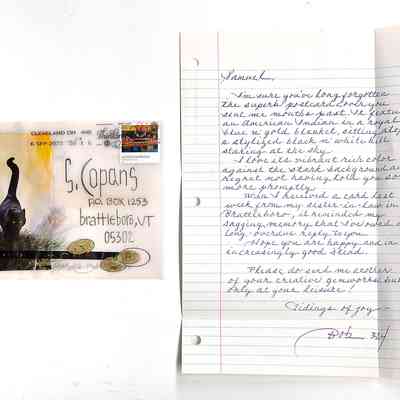 CLEVELAND OH 440
6 SEP 2023
S. Copans
P.O. BOX 1253
Brattleboro, VT
05302
Samuel,
I'm sure you've long forgotten
the superb postcard you
sent me months past.
an American Indian in a royal
blue n' gold blanket, sitting atop
a stylized black n' white hill
staring at the sky.
I love its vibrant rich color
against the stark background and
regret not having told you so
more promptly.
When I received a card last
week from my sister-in-law in
Brattleboro, it reminded my
sagging memory that I owed a
long-overdue reply to you.
Hope you are happy and in
increasingly good stead.
Please do send me another
of your creative gemworks but
only at your leisure!
Tidings of joy—
Bob